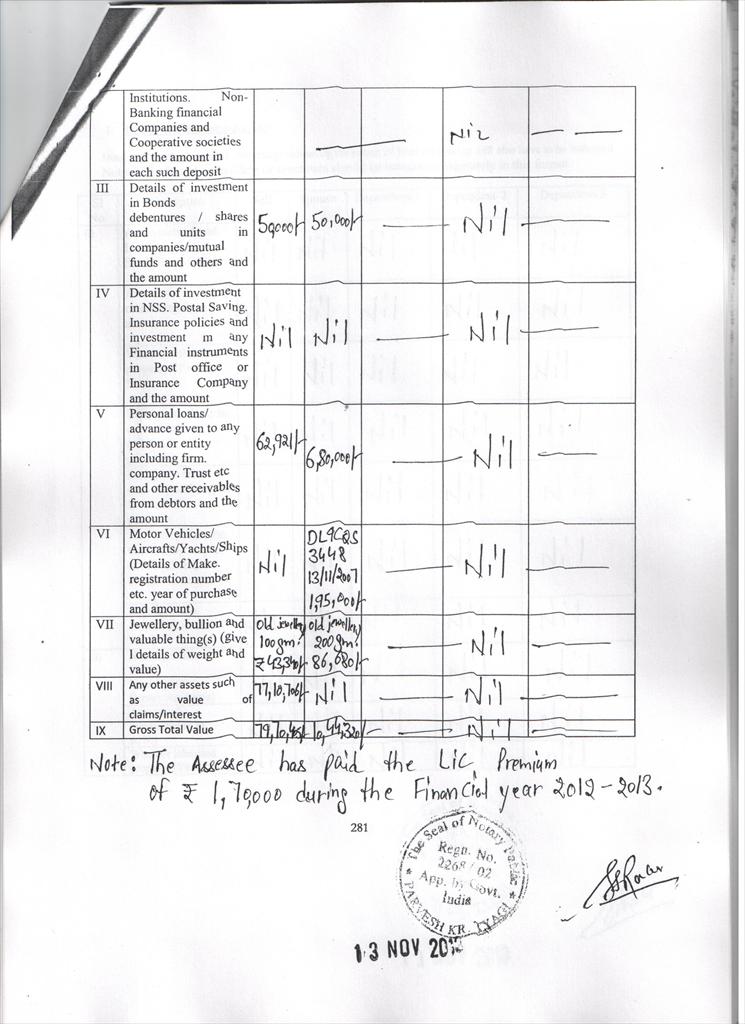 Institutions. Non-
Banking financial
Companies and
Cooperative societies
and the amount in
each such deposit
Nil
III Details of investment
in Bonds
debentures / shares
and units in
companies/mutual
funds and others and
the amount
50,000/- 50,000/- Nil
IV Details of investment
in NSS. Postal Saving.
Insurance policies and
investment m any
Financial instruments
in Post office or
Insurance Company
and the amount
Nil Nil Nil
V Personal loans/
advance given to any
person or entity
including firm.
company. Trust etc
and other receivables
from debtors and the
amount
62,921/- 6,80,000/- Nil
VI Motor Vehicles/
Aircrafts/Yachts/Ships
(Details of Make.
registration number
etc. year of purchase
and amount)
Nil
DL9CQS
3448
13/11/2007
1,95,000/-
Nil
VII Jewellery, bullion and
valuable thing(s) (give
l details of weight and
value)
Old jewellery
100 gm.
₹ 43,340/-
old jewellery
200 gm.
86,680/-
Nil
VIII Any other assets such
as value of
claims/interest
77,10,706/- Nil Nil
IX Gross Total Value Nil
Note: The Assessee has paid the Lic Premium
of ₹ 1,70,000 during the Financial year 2012-2013.
281
The Seal of Notary Public
Regn. No.
2268 / 02
App. by Govt.
India
PARVESH KR. TYAGI
13 NOV